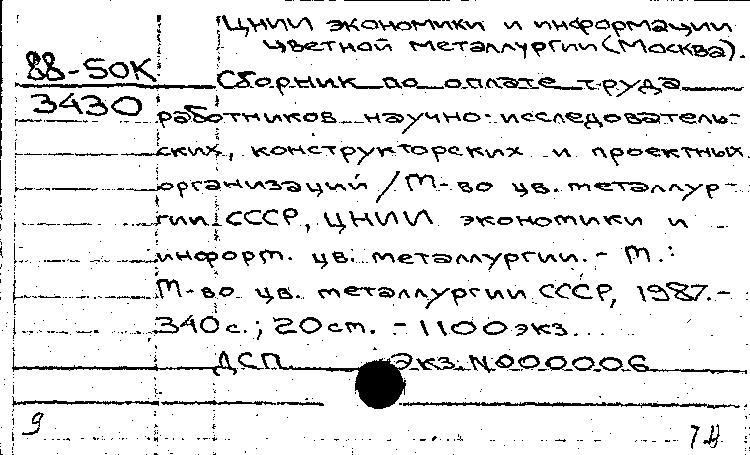 ЦНИИ экономики и информации
цветной металлургии (Москва).
88-50К
Сборник по оплате труда
3430
работников научно-исследователь-
ских, конструкторских и проектных
организаций / М-во цв. металлур-
гии СССР, ЦНИИ экономики и
информ. цв. металлургии. - М.:
М-во цв. металлургии СССР, 1987. -
340 с.; 20 см. - 1100 экз.
ДСП Экз. N000006
9